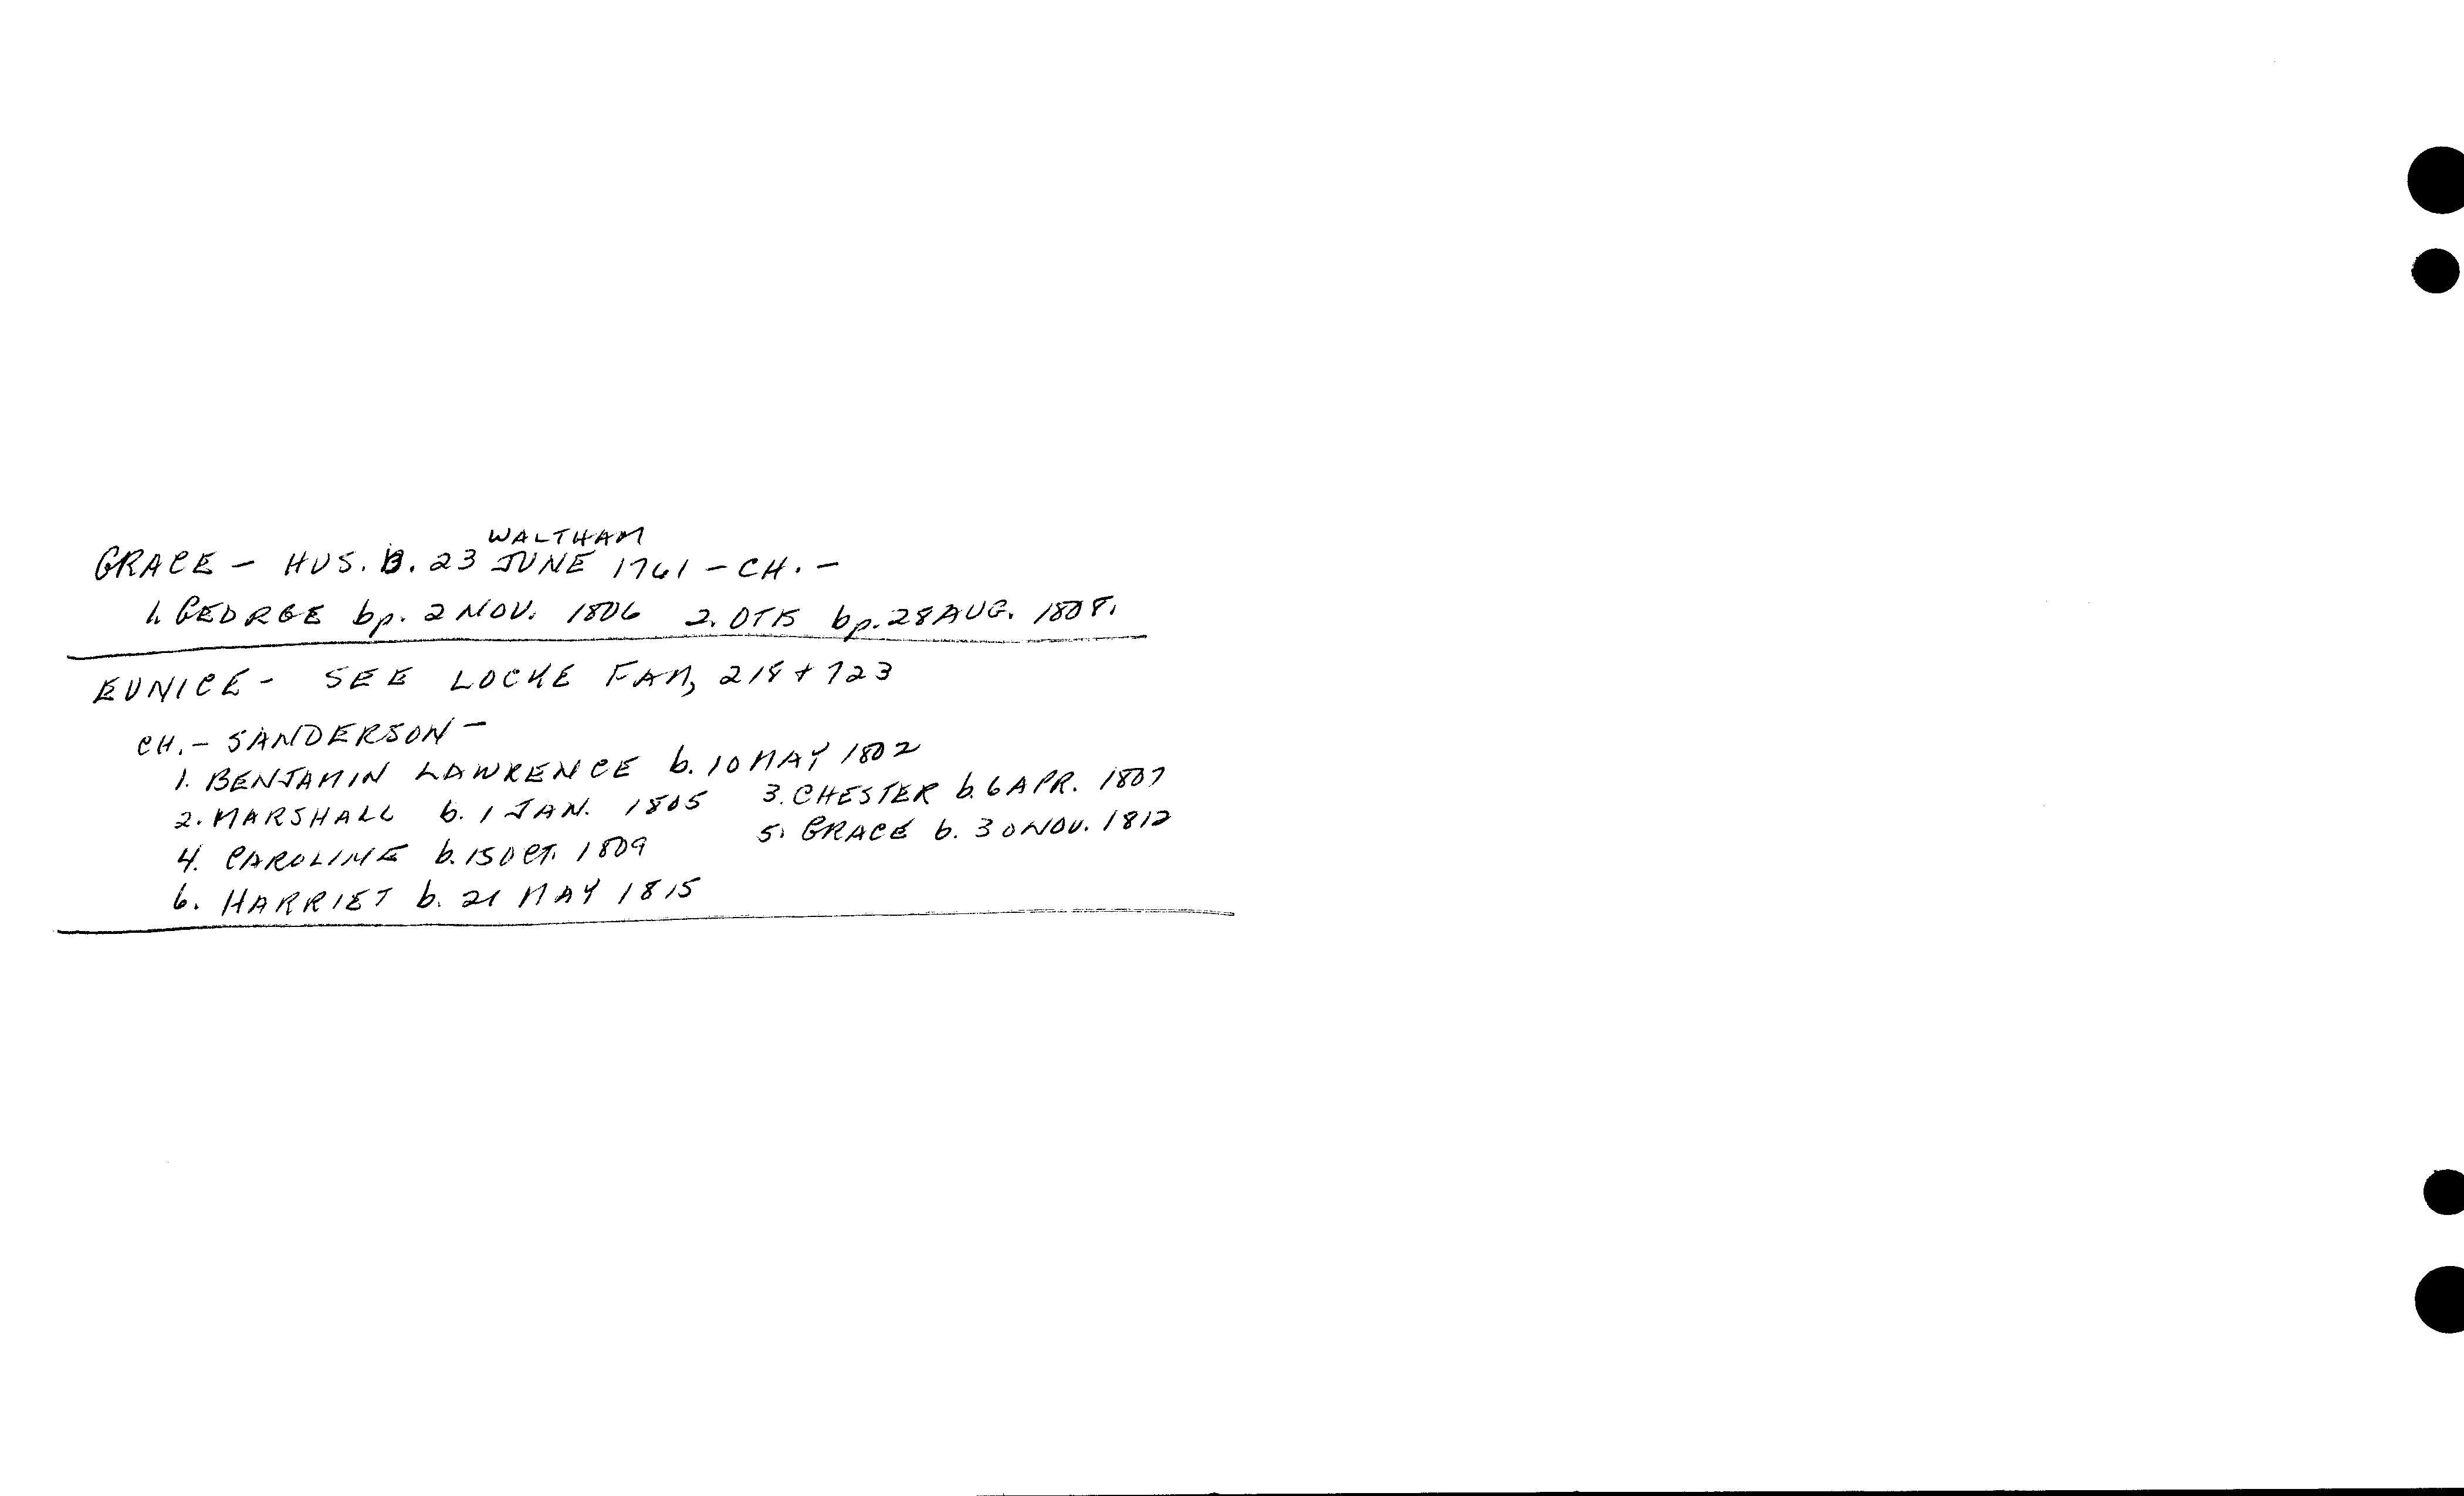 WALTHAM
GRACE - HUS. B. 23 JUNE 1761 - CH. -
1. GEORGE bp. 2 NOV. 1806 2. OTIS bp. 28 AUG. 1808.
EUNICE - SEE LOCKE FAM, 218 + 723
CH. - SANDERSON -
1. BENJAMIN LAWRENCE b. 10 MAY 1802
2. MARSHALL b. 1 JAN. 1805 3. CHESTER b. 6 APR. 1807
4. CAROLINE b. 15 OCT. 1809 5. GRACE b. 30 NOV. 1812
6. HARRIET b. 21 MAY 1815